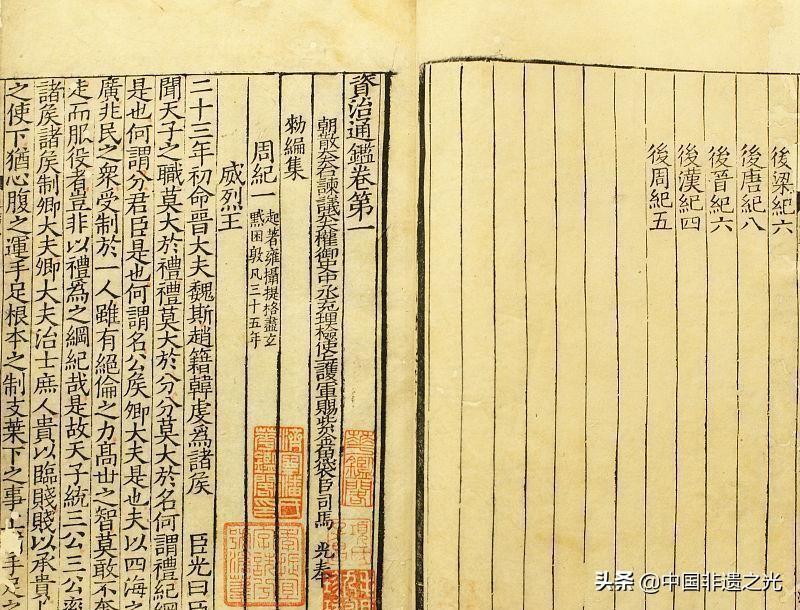 後梁紀六
後唐紀八
後晉紀六
後漢紀四
後周紀五
資治通鑑卷第一
朝散大夫右諫議大夫權御史中丞充理檢使上護軍賜紫金魚袋臣司馬 光奉
勑編集
周紀一 起著雍攝提格盡玄
黓困敦凡三十五年
威烈王
二十三年初命晉大夫魏斯趙籍韓虔爲諸侯 臣光曰臣
聞天子之職莫大於禮禮莫大於分分莫大於名何謂禮紀綱
是也何謂分君臣是也何謂名公侯卿大夫是也夫以四海之
廣兆民之衆受制於一人雖有絕倫之力髙世之智莫敢不奔
走而服役者豈非以禮爲之綱紀哉是故天子統三公三公率
諸侯諸侯制卿大夫卿大夫治士庶人貴以臨賤賤以承貴上
之使下猶心腹之運手足根本之制支葉下之事上 手足之
头条 @中国非遗之光